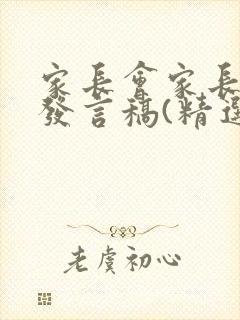 家長會家長
發言稿(精選
老虞初心